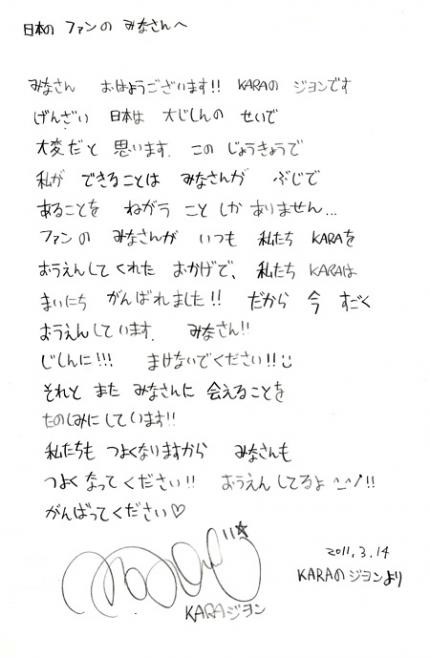 日本の ファンの みなさんへ
みなさん おはようございます!! KARAの ジヨンです
げんざい 日本は 大じしんの せいで
大変だと 思います. この じょうきょうで
私が できることは みなさんが ぶじで
あることを ねがう こと しか ありません...
ファンの みなさんが いつも 私たち KARAを
おうえんしてくれた おかげで、 私たち KARAは
まいにち がんばれました!! だから 今 すごく
おうえんしています. みなさん!!
じしんに!!! まけないでください!!
それと また みなさんに 会えることを
たのしみにしています!!
私たちも つよくなりますから みなさんも
つよく なって ください!! おうえん してるよ !!
がんばってください♡
KARAジヨン
2011.3.14
KARAの ジヨンより